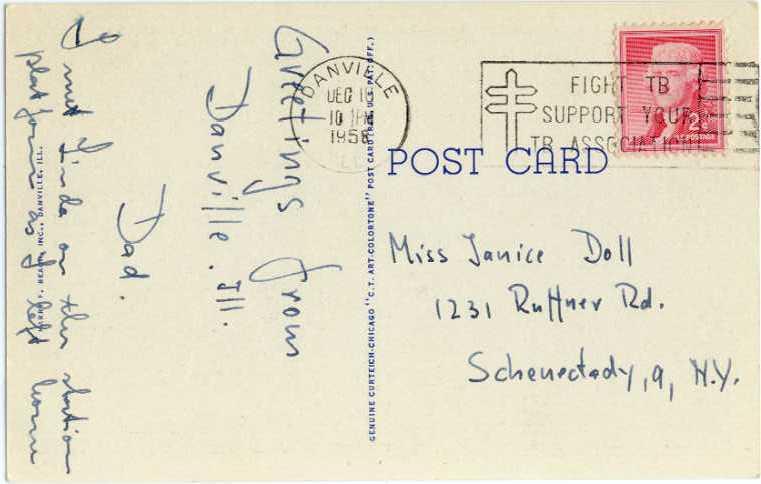 Greetings from
Danville. Ill.
Dad.
I met Linda on the station
platform as I left home
INC., DANVILLE, ILL.
GENUINE CURTEICH-CHICAGO "C.T. ART-COLORTONE" POST CARD (REG. U.S. PAT. OFF.)
DANVILLE
DEC
PM
ILL
FIGHT TB
SUPPORT YOUR
TB ASSOCIATION
2¢
POSTAGE
POST CARD
Miss Janice Doll
1231 Ruffner Rd.
Schenectady, 9, N.Y.